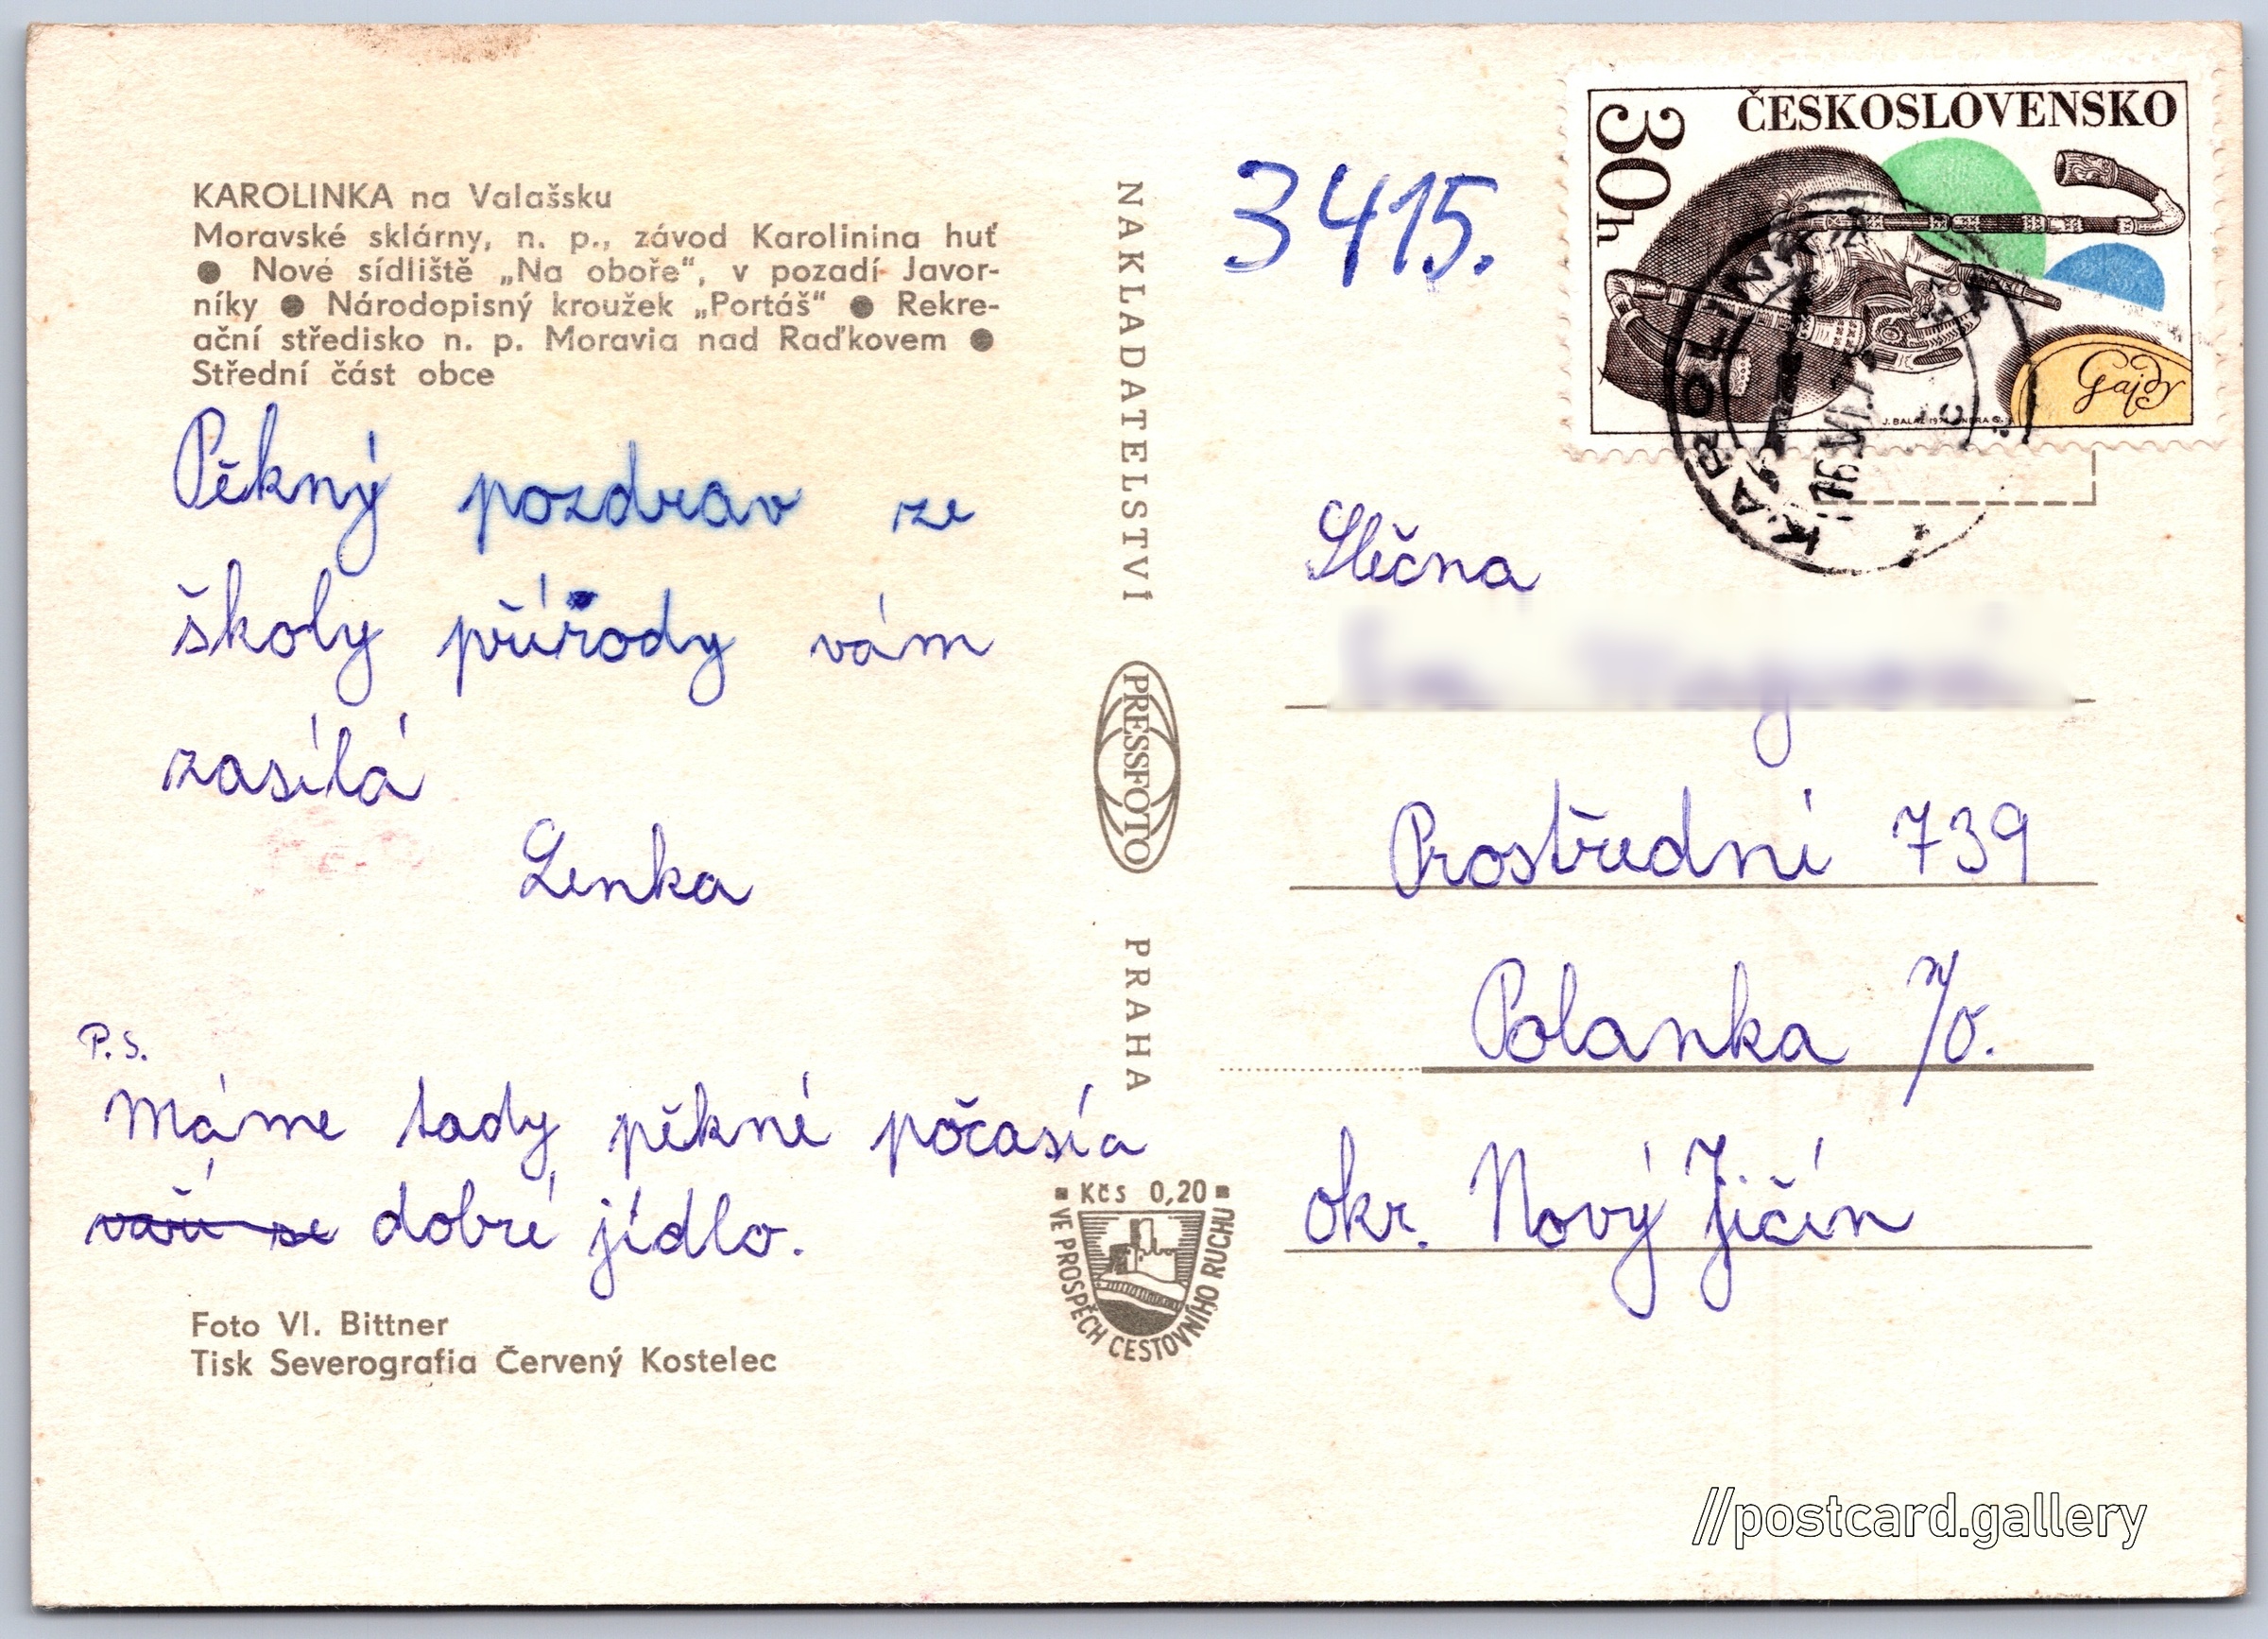 KAROLINKA na Valašsku
Moravské sklárny, n. p., závod Karolinina huť
● Nové sídliště „Na oboře“, v pozadí Javor-
níky ● Národopisný kroužek „Portáš“ ● Rekre-
ační středisko n. p. Moravia nad Raďkovem ●
Střední část obce
Pěkný pozdrav ze
školy přírody vám
zasílá
Lenka
P.S.
Máme tady pěkné počasía
vaří se dobré jídlo.
Foto Vl. Bittner
Tisk Severografia Červený Kostelec
NAKLADATELSTVÍ PRESSFOTO PRAHA
Kčs 0,20
VE PROSPĚCH CESTOVNÍHO RUCHU
3415.
ČESKOSLOVENSKO
30h
Gajdy
KAROLINKA
Slečna
Prostřední 739
Polanka n/O.
okr. Nový Jičín
//postcard.gallery